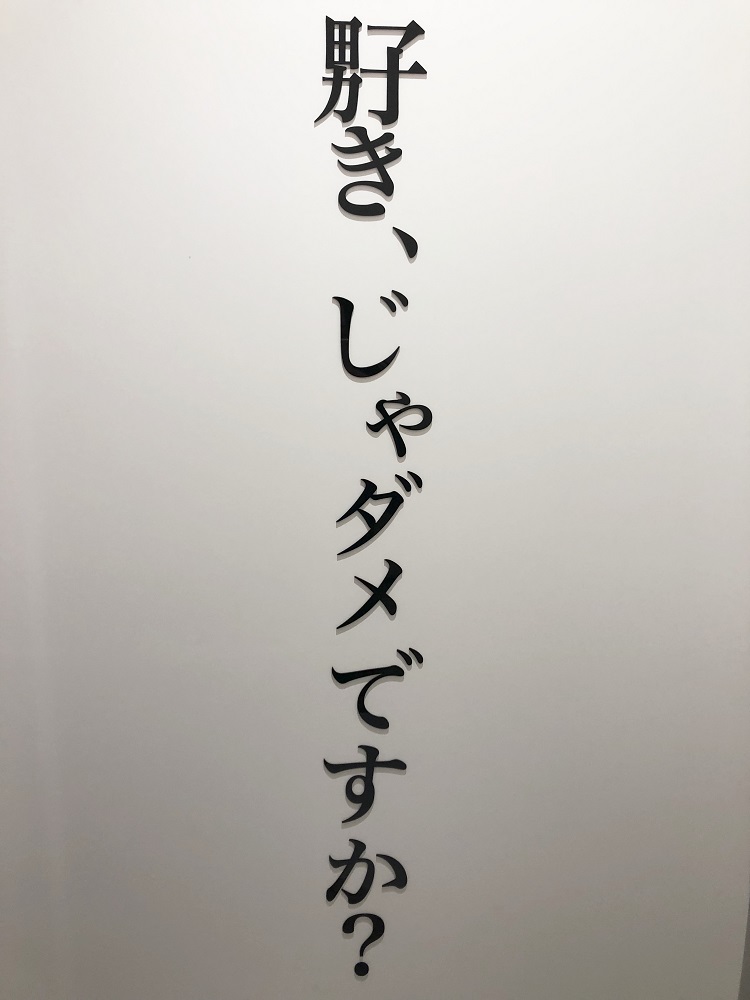 ⿰男子き、じゃダメですか？